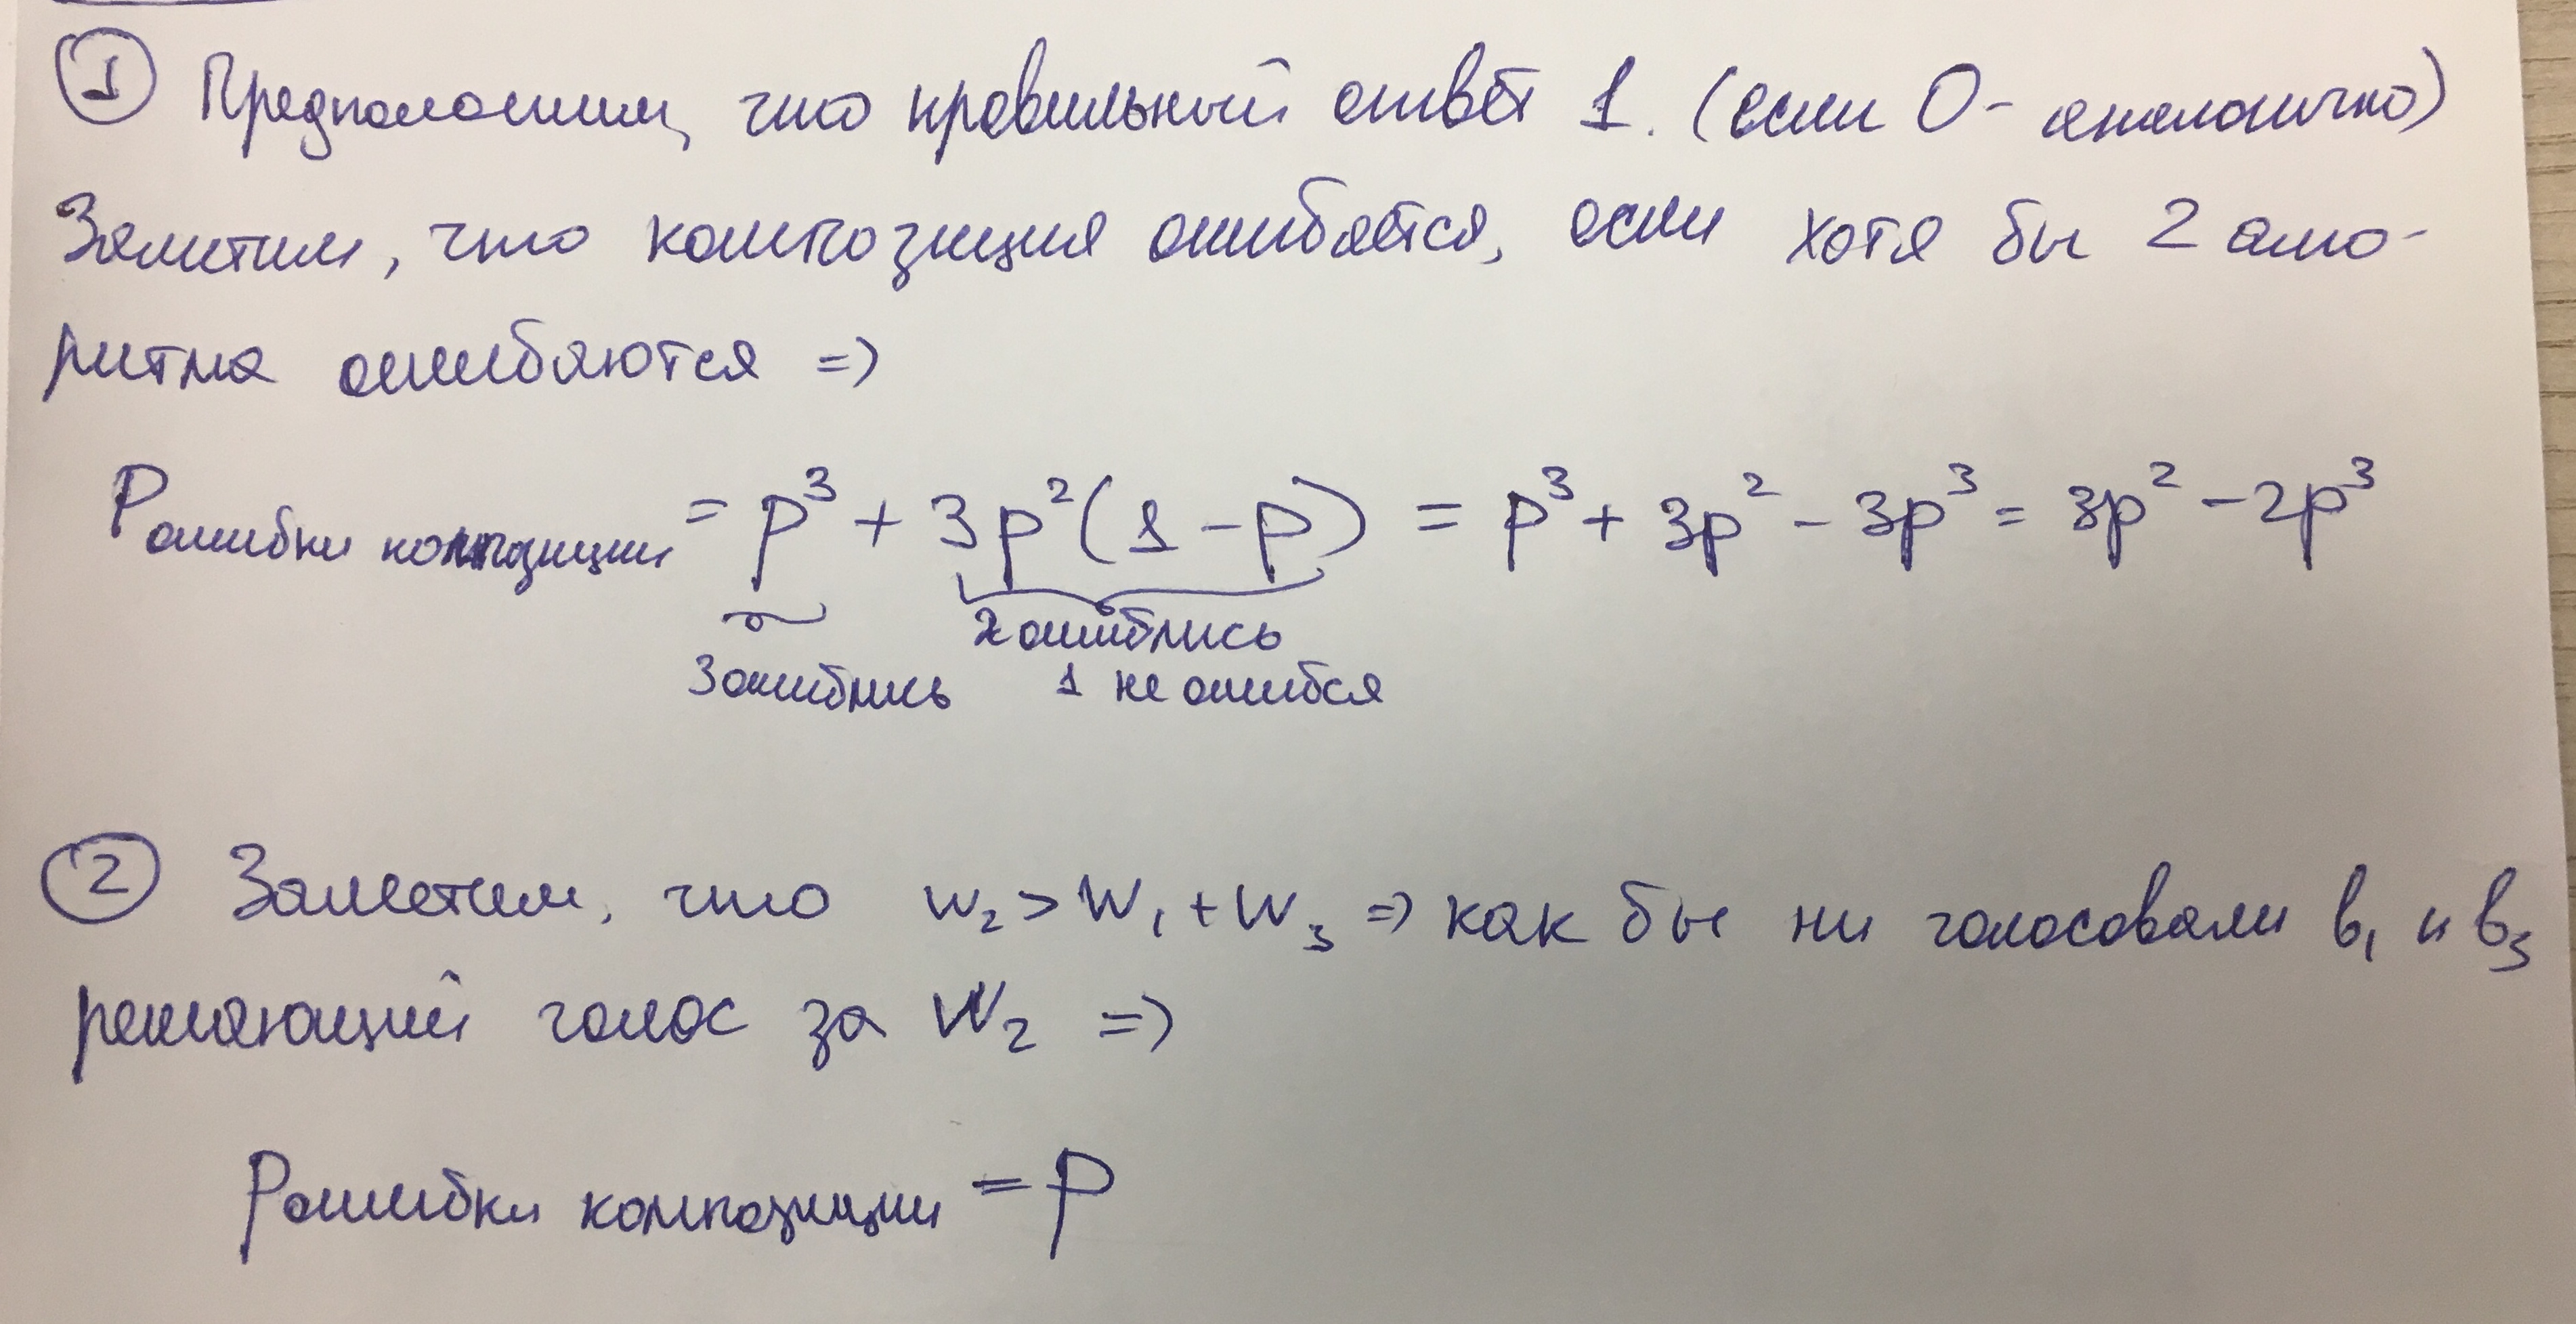 1 Предположим, что правильный ответ 1. (если 0 - аналогично)
Заметим, что композиция ошибается, если хотя бы 2 алго-
ритма ошибаются =>
P ошибки композиции = p³ + 3p²(1-p) = p³ + 3p² - 3p³ = 3p² - 2p³
2 ошиблись
3 ошиблись 1 не ошибся
2 Заметим, что w₂ > w₁ + w₃ => как бы ни голосовали b₁ и b₃
решающий голос за w₂ =>
P ошибки композиции = p